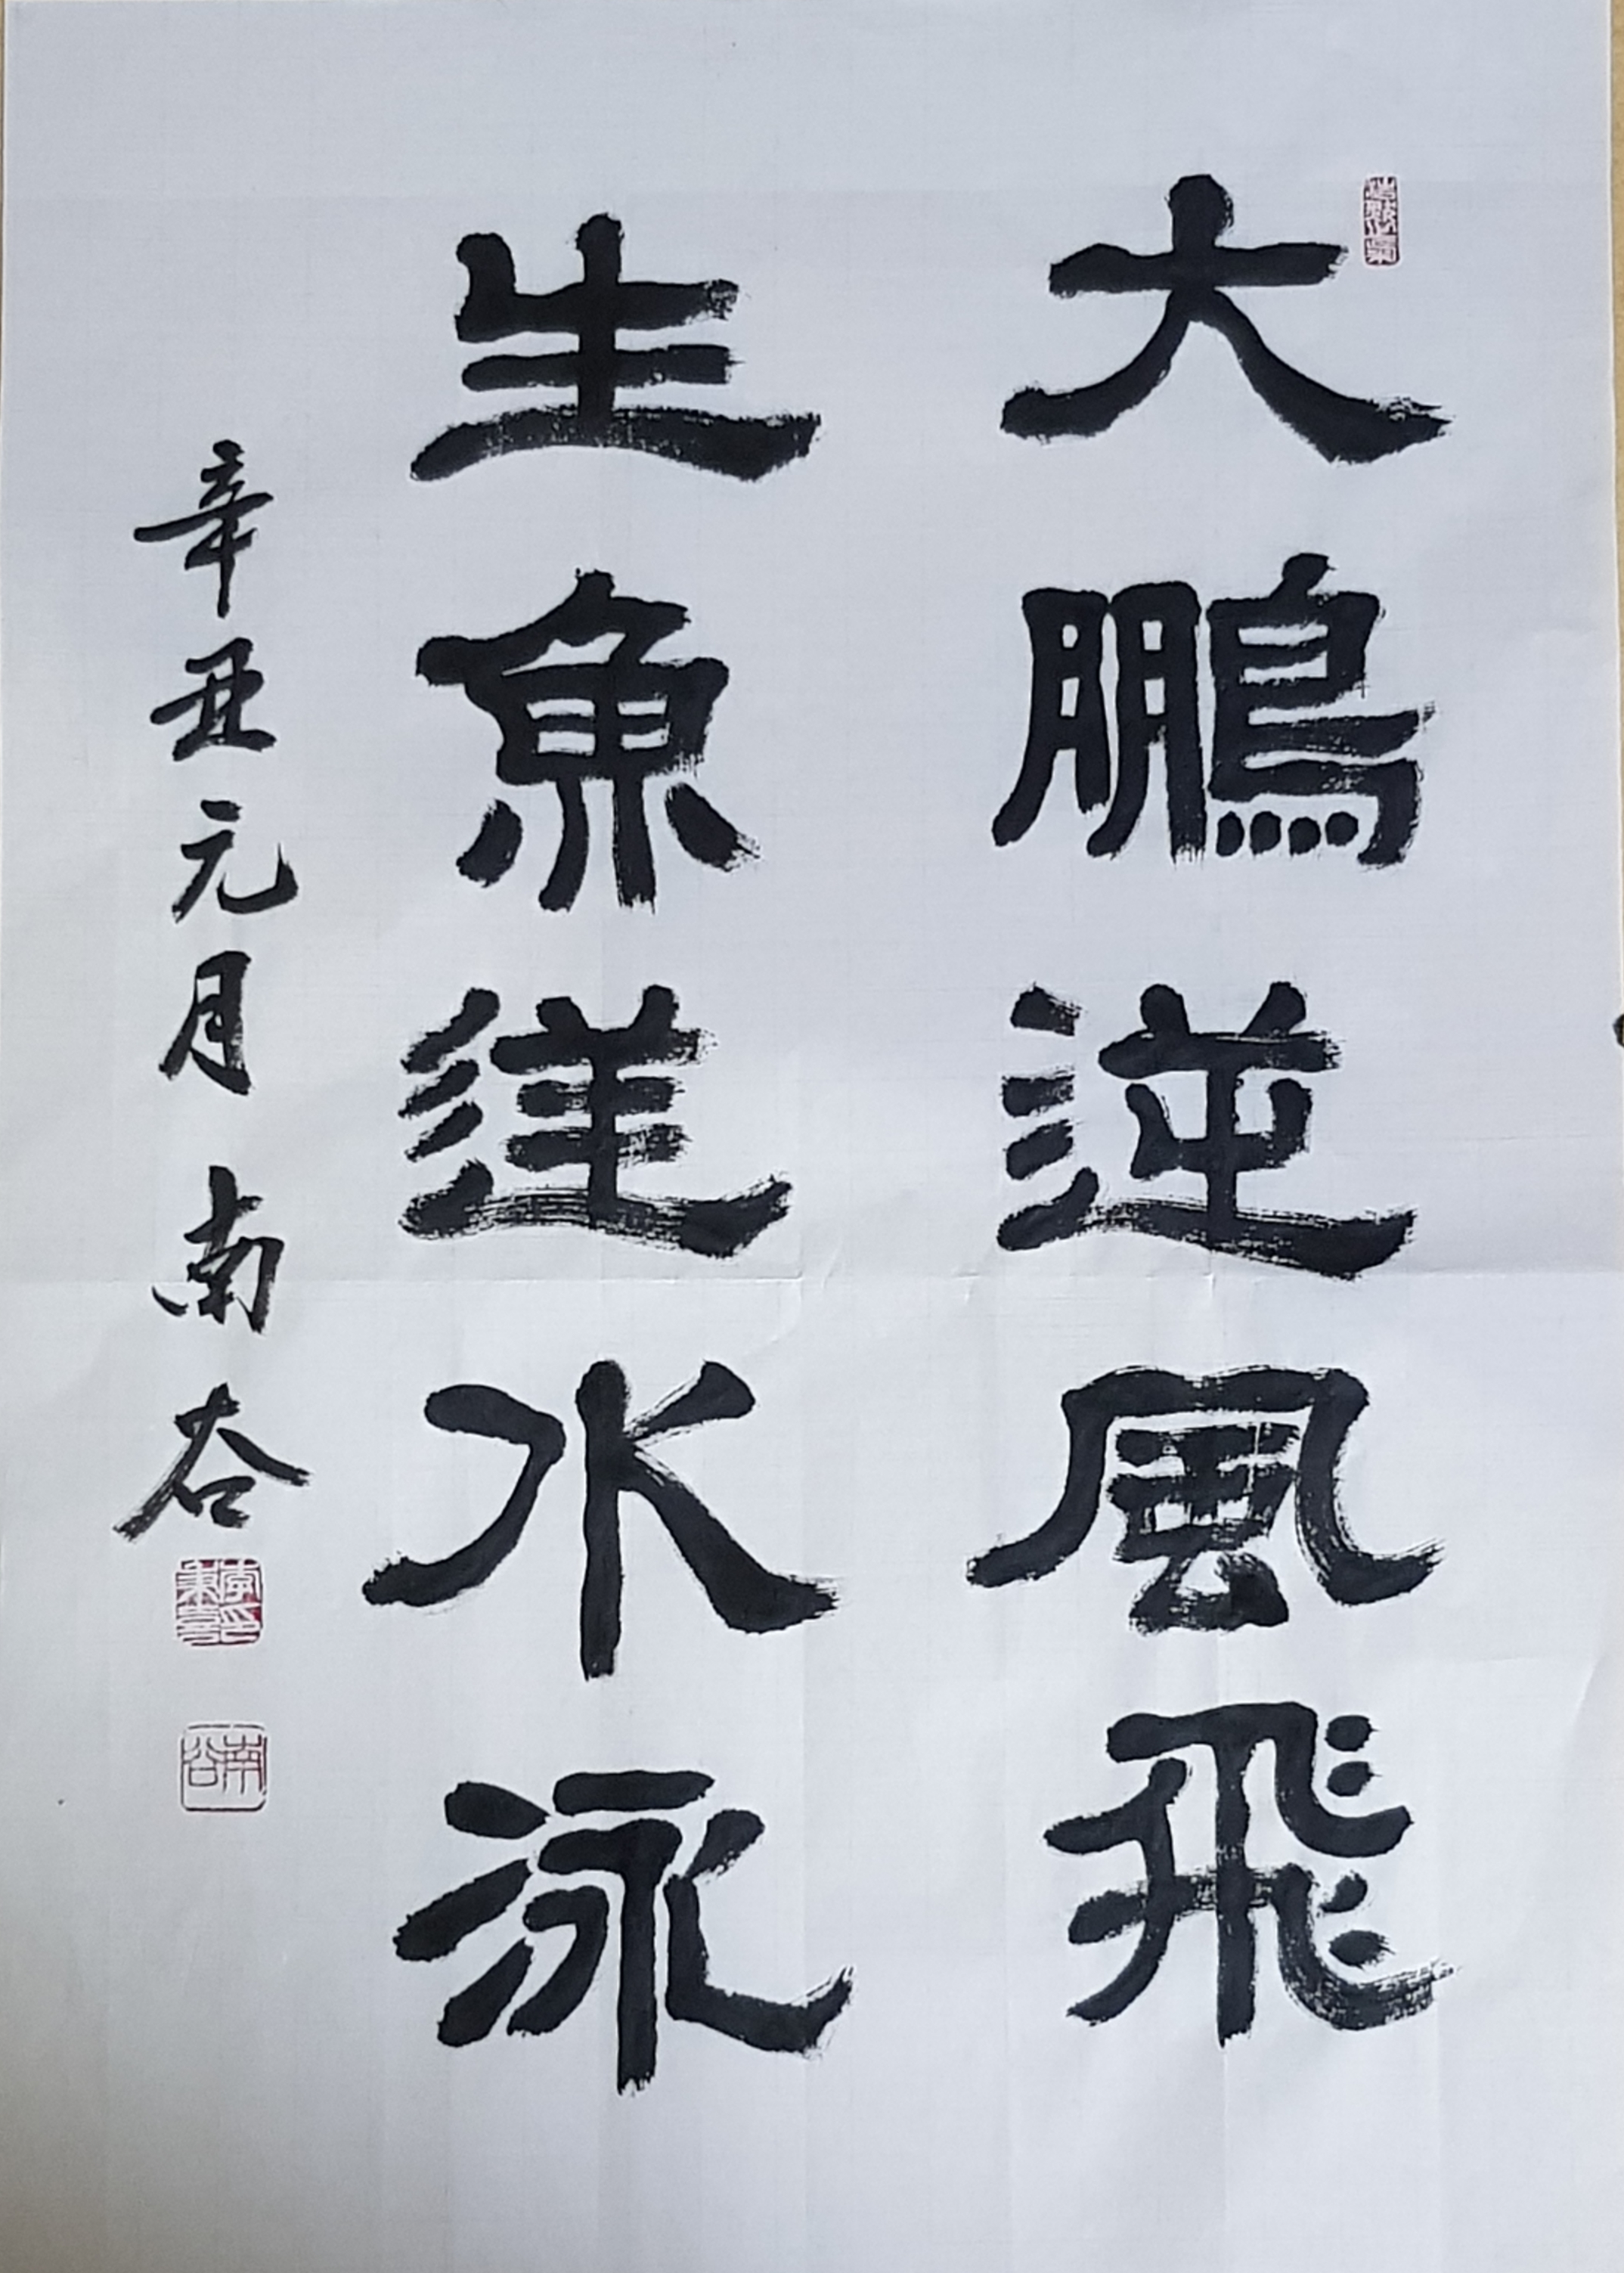 大鵬逆風飛
生魚逆水泳
辛丑元月 南谷
南谷